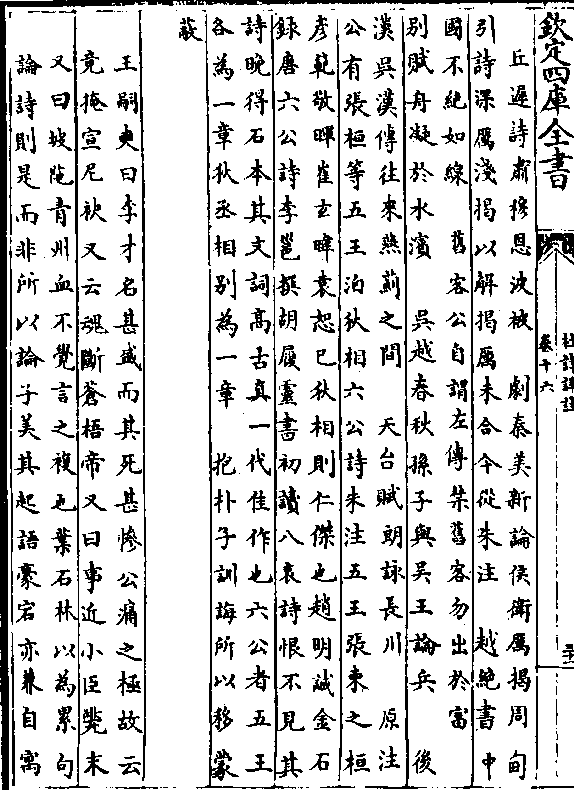 欽定四庫全書
杜詩詳註
卷十六
丘遲詩肅穆恩波被　劇秦美新論侯衛厲揭周旬
引詩深厲淺揭以解揭厲未合今從朱注　越絶書中
國不絶如線　舊客公自謂左傳棄舊客勿出於富
別賦舟凝於水濱　吳越春秋孫子與吳王論兵　後
漢吳漢傳往來燕薊之間　天台賦朗詠長川　原注
公有張桓等五王洎狄相六公詩朱注五王張柬之桓
彥範敬暉崔玄暐袁恕已狄相則仁傑也趙明誠金石
録唐六公詩李邕撰胡履靈書初讀八哀詩恨不見其
詩晚得石本其文詞高古真一代佳作也六公者五王
各為一章狄丞相别為一章　抱朴子訓誨所以移蒙
蔽
王嗣奭曰李才名甚盛而其死甚慘公痛之極故云
竟掩宣尼袂又云魂斷蒼梧帝又曰事近小臣斃末
又曰坡陁青州血不覺言之複也葉石林以為累句
論詩則是而非所以論子美其起語豪宕亦兼自寓